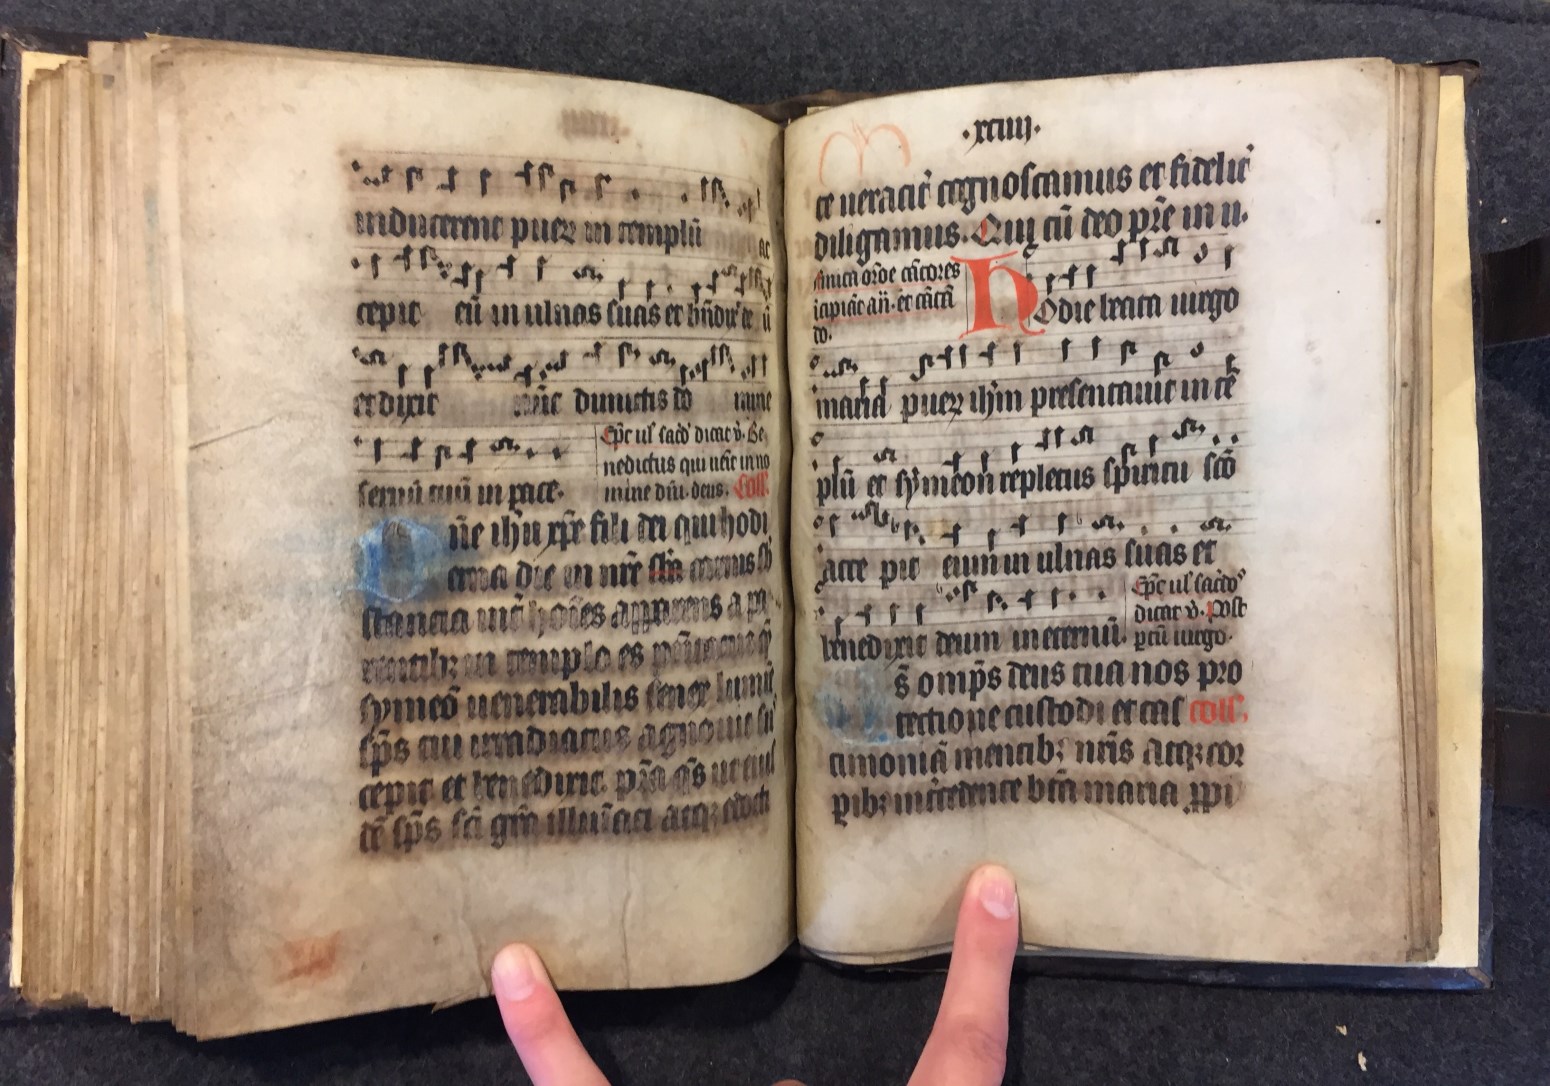 inducerent pueꝝ in templū ac
cepit eū in ulnas suas et
et dixit dimittis
seruū tuū in pace.
Ep̄c ul̄ sac̄d dicat v̄. Be
nedictus qui uēit in no
mine dn̄i. deus. Coll̄.
n̄e ih̄u xp̄e fili dei qui hodi
erna die in carnis
stancia int̄ ho̅i̅es apparens a pa
rentibꝫ in templo es
symeō uenerabilis senex
sp̄s tui irradiatus agnouit
cepit et benedixit. p̄sta q̄s ut
sp̄s sc̄i gr̄a atqꝫ edocti
.xciiij.
te ueracit̄ cognoscamus et fidelit̄
diligamus. Qui cū deo pr̄e in u.
simili orde cātores
icipiāt añ. et cāta
do.
Hodie beata uirgo
maria pueꝝ ih̄m presentauit in tē
plū et symeon repletus spiritu sc̄o
acce pit eum in ulnas suas et
benedixit deum in eternū.
Ep̄c ul̄ sac̄dos
dicat v̄. Post
ptū uirgo.
s̄ omp̄s deus tua nos pro
tectione custodi et cas coll̄.
timoniā mentibꝫ nr̄is atqꝫ cor
poribꝫ intercedente bt̄a maria